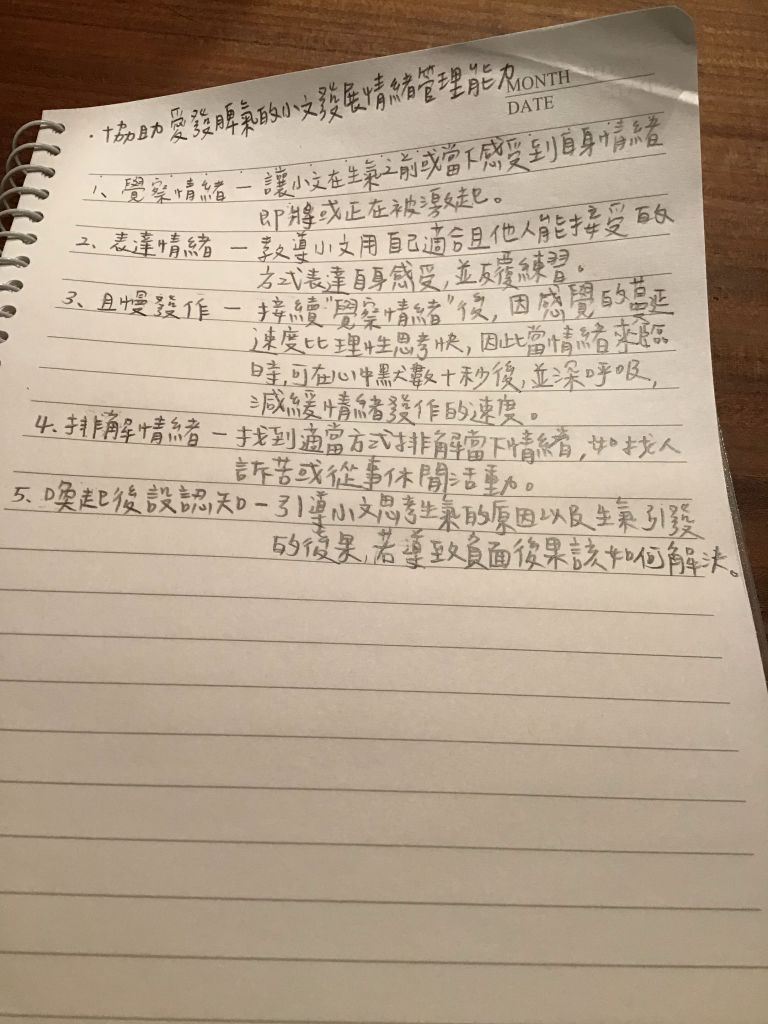 MONTH
DATE
·協助愛發脾氣的小文發展情緒管理能力
1、覺察情緒—讓小文在生氣之前或當下感受到自身情緒
即將或正在被激起。
2、表達情緒—教導小文用自己適合且他人能接受的
方式表達自身感受,並反覆練習。
3、且慢發作—接續"覺察情緒"後,因感覺的蔓延
速度比理性思考快,因此當情緒來臨
時,可在心中默數十秒後,並深呼吸,
減緩情緒發作的速度。
4、排解情緒—找到適當方式排解當下情緒,如找人
訴苦或從事休閒活動。
5、喚起後設認知—引導小文思考生氣的原因以及生氣引發
的後果,若導致負面後果該如何解決。